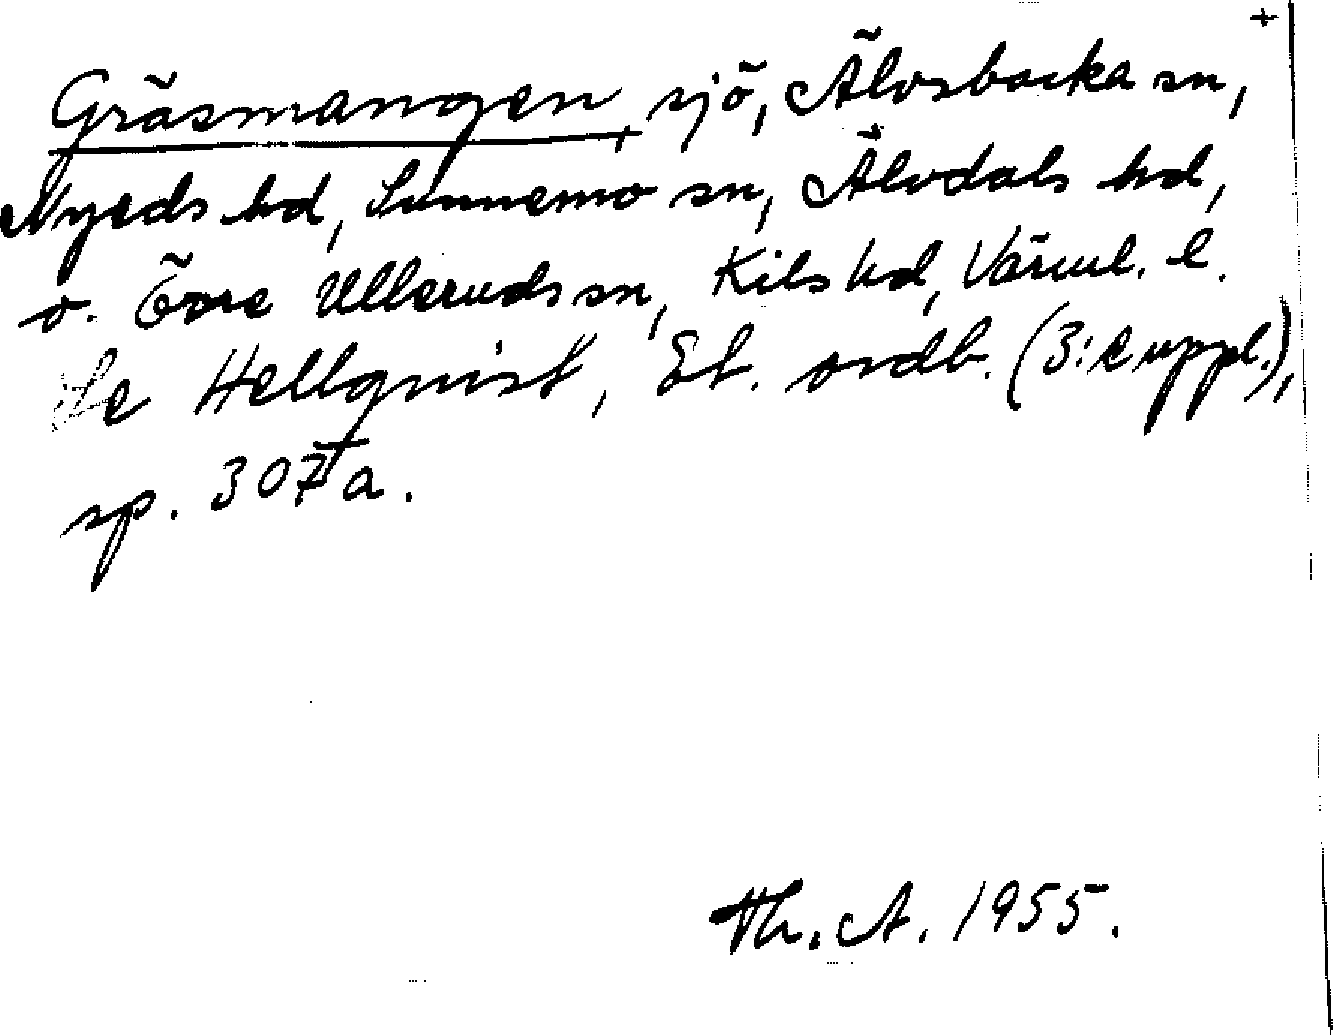 +
Gräsmangen sjö, Älvsbacka sn,
Nyeds hd, Sunnemo sn, Älvdals hd,
o. Övre Ulleruds sn, Kils hd, Värml. l.
Se Hellquist, Et. ordb. (3:e uppl.),
sp. 307 a.
Th. A. 1955.